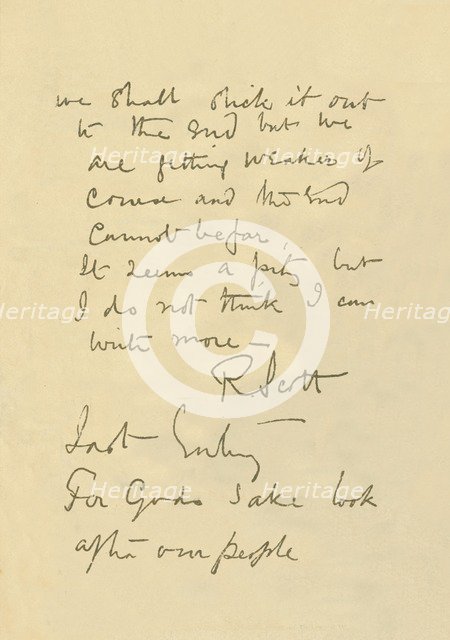 we shall stick it out
to the end but we
are getting weaker of
course and the end
cannot be far.
It seems a pity but
I do not think I can
write more —
R. Scott
Last Entry
For Gods sake look
after our people
Heritage Heritage
Heritage Heritage Heritage
Heritage Heritage